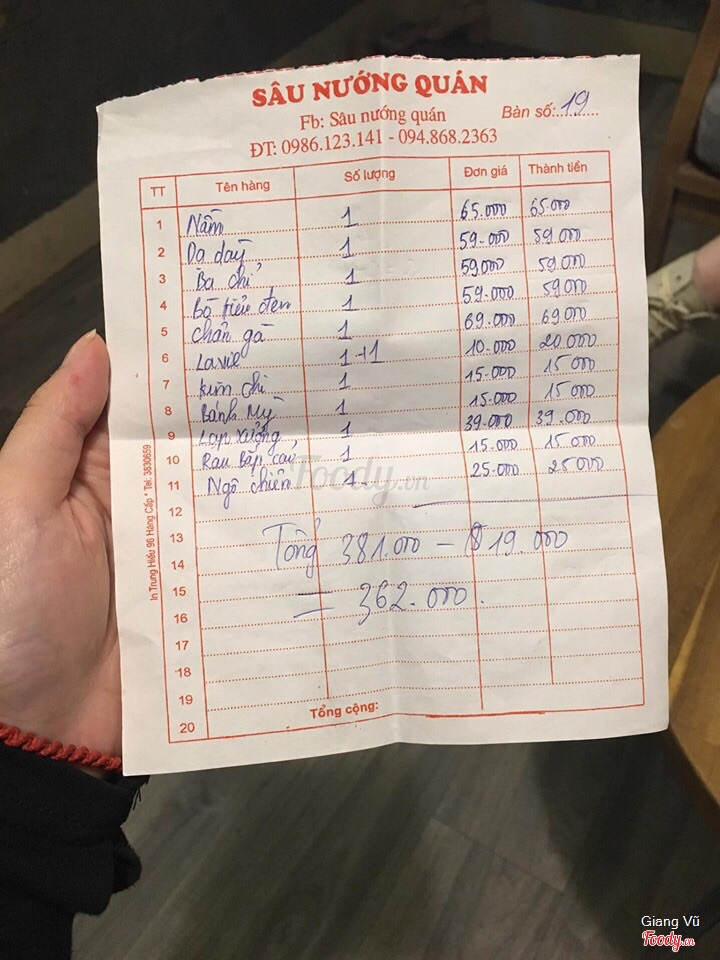 SÂU NƯỚNG QUÁN
Fb: Sâu nướng quán
Bàn số: 19
ĐT: 0986.123.141 - 094.868.2363
TT Tên hàng Số lượng Đơn giá Thành tiền
1 Nầm 1 65.000 65.000
2 Dạ dày 1 59.000 59.000
3 Ba chỉ 1 59000 59.000
4 Bò tiêu đen 1 59.000 59000
5 chân gà 1 69.000 69000
6 Lavie 1+1 10.000 20.000
7 kim chi 1 15.000 15000
8 Bánh Mỳ 1 15.000 15000
9 Lạp xưởng 1 39.000 39.000
10 Rau bắp cải 1 15.000 15.000
11 Ngô chiên 1 25.000 25000
12
13
14
15
16
17
18
19
20
Tổng 381.000 - 19.000
= 362.000
Tổng cộng:
In Trung Hiếu 96 Hàng Cấp * Tel: 3830659
Foody.vn
Giang Vũ
Foody.vn